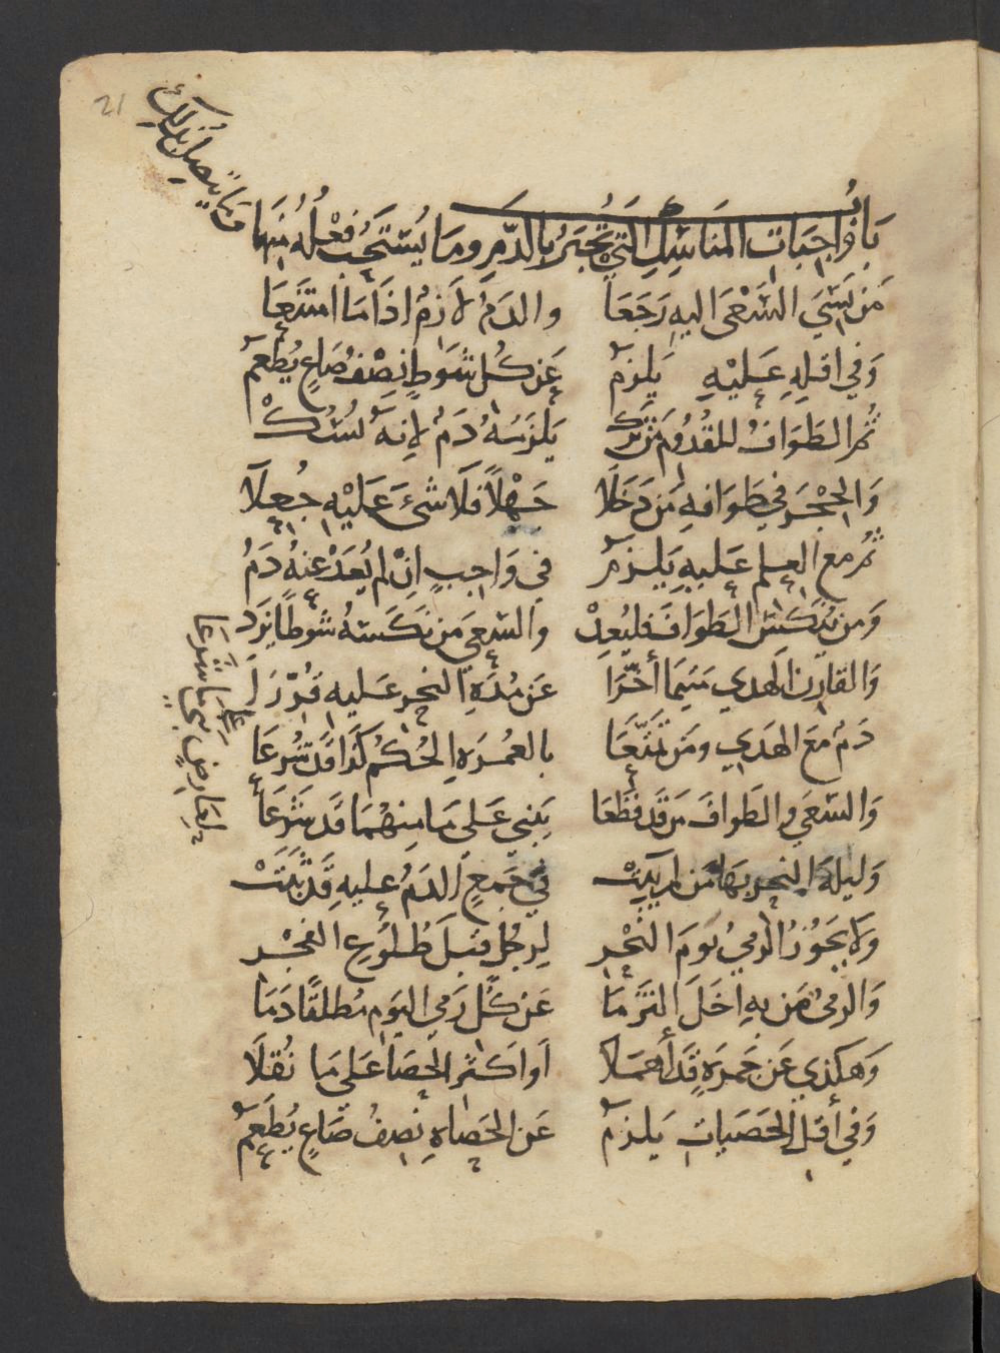 21
باب واجبات المناسك التي تُجبَر بالدم وما يُستحَب فعله منها
وما يتصل بذلك
مَن نسي السَّعْىَ اليه رَجَعَا والدمُ لَازمُ اذا ما امتنعَا
وَفي اقله عَليْهِ يَلزمُ عَن كُل شَوطٍ نِصْفُ صَاعٍ يُطعَمُ
ثُم الطَوَافُ للقُدُوم مَن تَرَكْ يَلزَمُهُ دَمُ لانه نُسُكْ
وَالحِجْرَ في طَوَافهِ مَن دَخَلَا جَهْلاً فَلَا شئَ عَلَيْهِ جُعِلَا
ثُم مع العِلم عَليهِ يَلزمُ في وَاجبٍ اِنْ لم يُعَدْ عنهُ دَمُ
وَمن يُنَكس الطَوَافَ فليُعِدْ والسَّعيَ مَن نكسَهُ شوطًا يَزِد
وَالقارن الهدي مَتيمَا أخّرَا عَن مُدَةِ النحرِ عَليهِ قُرّرَا
دَمُ مَعَ الهَدي ومَن تمتَّعَا بالعُمرَةِ الحُكمُ كَذَا قَد شُرِعَا
وَالسَّعَي والطَوافَ مَن قَد قَطَعَا يَبني عَلى مَا مِنهُمَا قَد شَرَعَا
لعَارِضٍ
وَليلة النحرِ بهَا مَن لم يَبِتْ في جَمعٍ الدَمُ عليهِ قَد ثبَتَتْ
وَلا يَجوُزُ الرميُ يَومَ النَّحْرِ لرجُلٍ قبلَ طُلوُعِ الفجْرِ
وَالرميُ مَن بهِ اَخَلَ التزمَا عَن كُل رَمي اليَومِ مُطلقًا دَمَا
وَهكذي عَن جَمرَةٍ قَد أهمَلَا اَو اَكثرِ الحَصَا عَلى مَا نُقلَا
وَفي أقل الحَصَيات يَلزمُ عَن الحَصَاهِ نِصفُ صَاعٍ يُطعَمُ